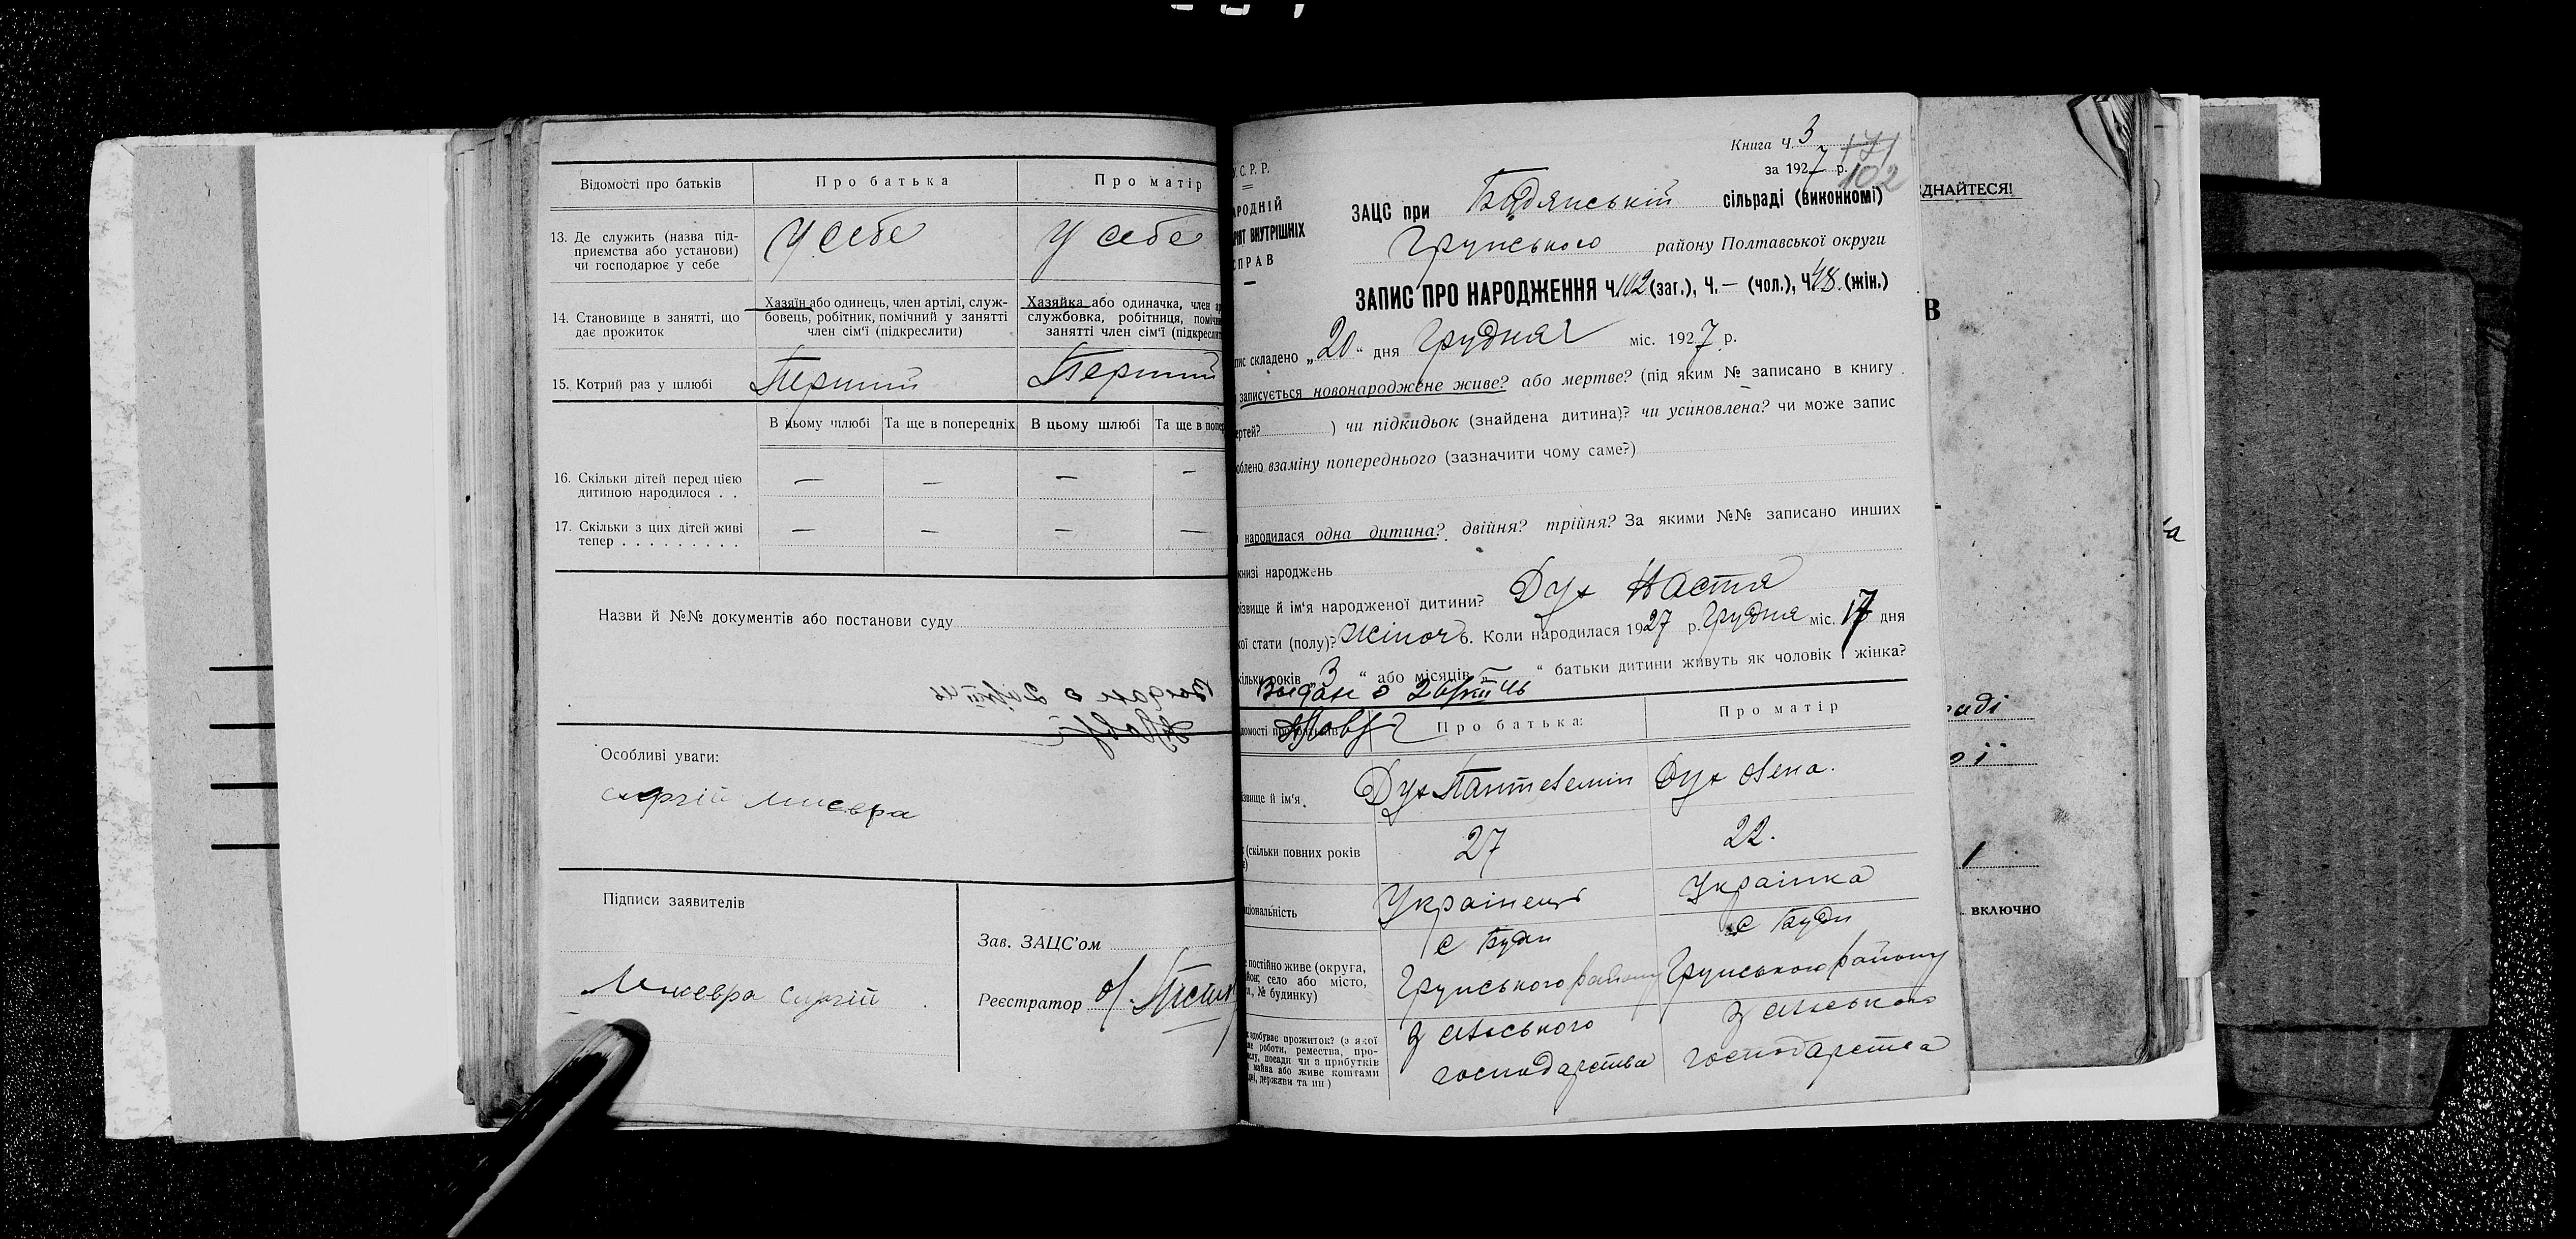 Відомості про батьків
Про батька
Про матір
13. Де служить (назва під-
приємства або установи)
чи господарює у себе
У себе
У себе
14. Становище в занятті, що
дає прожиток
Хазяїн або одинець, член артілі, служ-
бовець, робітник, помічний у занятті
член сім'ї (підкреслити)
Хазяйка або одиначка, член
службовка, робітниця,
занятті член сім'ї
15. Котрий раз у шлюбі
Перший
Перший
В цьому шлюбі
Та ще в попередніх
В цьому шлюбі
Та ще в
16. Скільки дітей перед цією
дитиною народилося . .
— — — —
17. Скільки з цих дітей живі
тепер . . . . . . . . .
— — — —
Назви й №№ документів або постанови суду
Особливі уваги:
Підписи заявителів
Зав. ЗАЦС'ом
Реєстратор
Книга Ч. 3
за 1927 р.
171
102
У.С.Р.Р.
ВНУТРІШНІХ
СПРАВ
ЗАЦС при Бодянській сільраді (виконкомі)
Грунського району Полтавської округи
ЗАПИС ПРО НАРОДЖЕННЯ Ч. 102 (заг.), Ч. — (чол.), Ч. 48 (жін.)
складено „20“ дня Грудня міс. 1927 р.
записується новонароджене живе? або мертве? (під яким № записано в книгу
) чи підкидьок (знайдена дитина)? чи усиновлена? чи може запис
взаміну попереднього (зазначити чому саме?)
народилася одна дитина? двійня? трійня? За якими №№ записано инших
народжень
й ім'я народженої дитини? Дух Настя
стати (полу)? Жіночь. Коли народилася 1927 р. Грудня міс. 17 дня
років „3“ або місяців „—“ батьки дитини живуть як чоловік і жінка?
Про батька:
Про матір
й ім'я.
Дух Пантелемин
Дух Олена.
(скільки повних років
27
22.
Українець
Українка
постійно живе (округа,
село або місто,
№ будинку)
с Буди
Грунського району
с Буди
Грунського району
здобуває прожиток? (з якої
роботи, ремества, про-
посади чи з прибутків
майна або живе коштами
держави та ин)
З сільського
господарства
З сільського
господарства
ДНАЙТЕСЯ!
В
раді
ої
1
включно